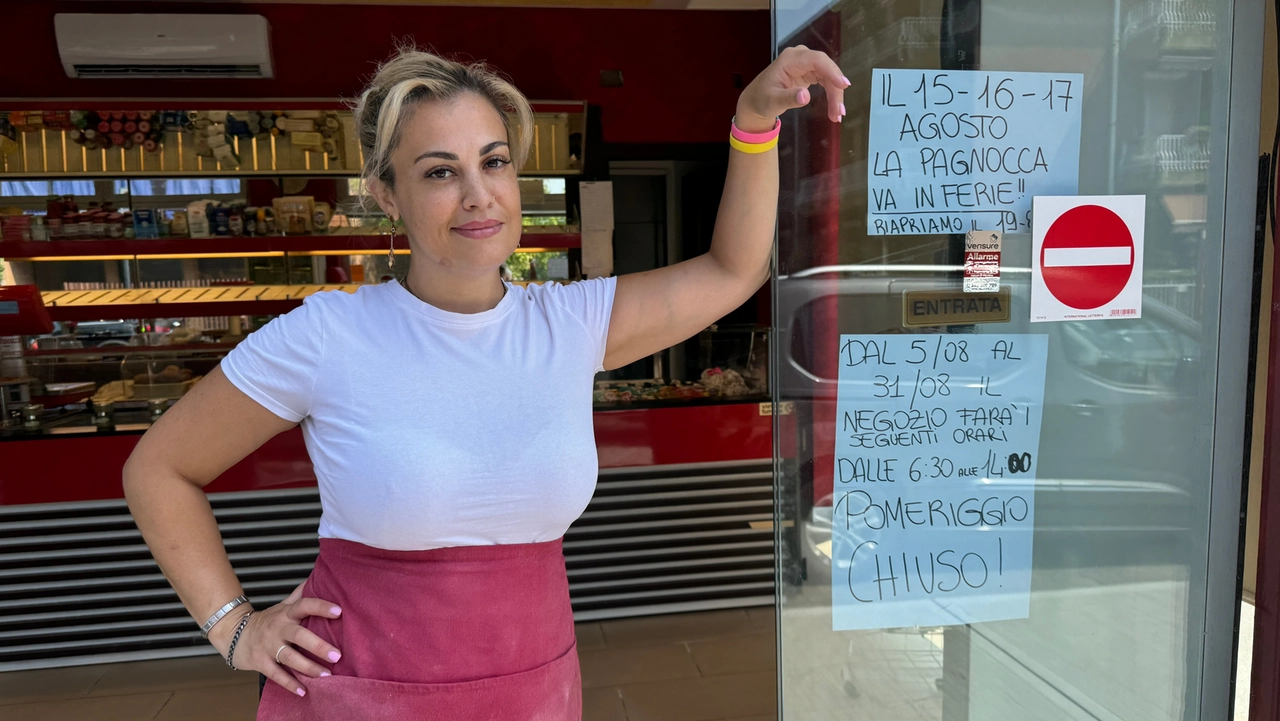 IL 15-16-17
AGOSTO
LA PAGNOCCA
VA IN FERIE!!
RIAPRIAMO IL 19-8
verisure
Allarme
ENTRATA
DAL 5/08 AL
31/08 IL
NEGOZIO FARÀ I
SEGUENTI ORARI
DALLE 6:30 ALLE 14:00
POMERIGGIO
CHIUSO!